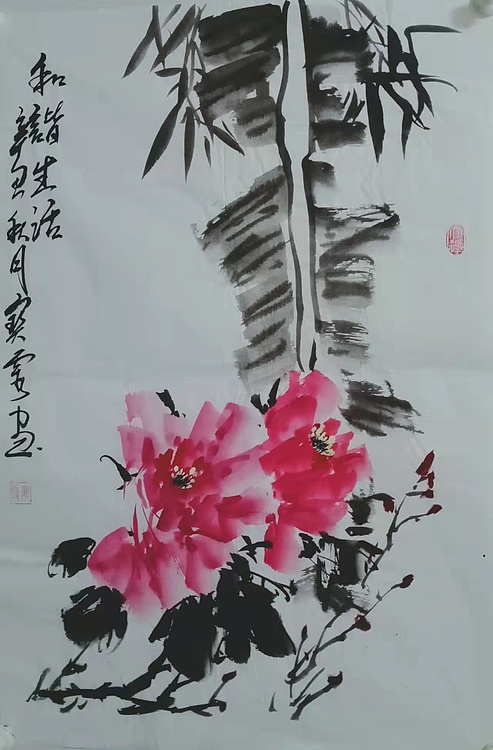 和谐生活
辛丑秋月寶画